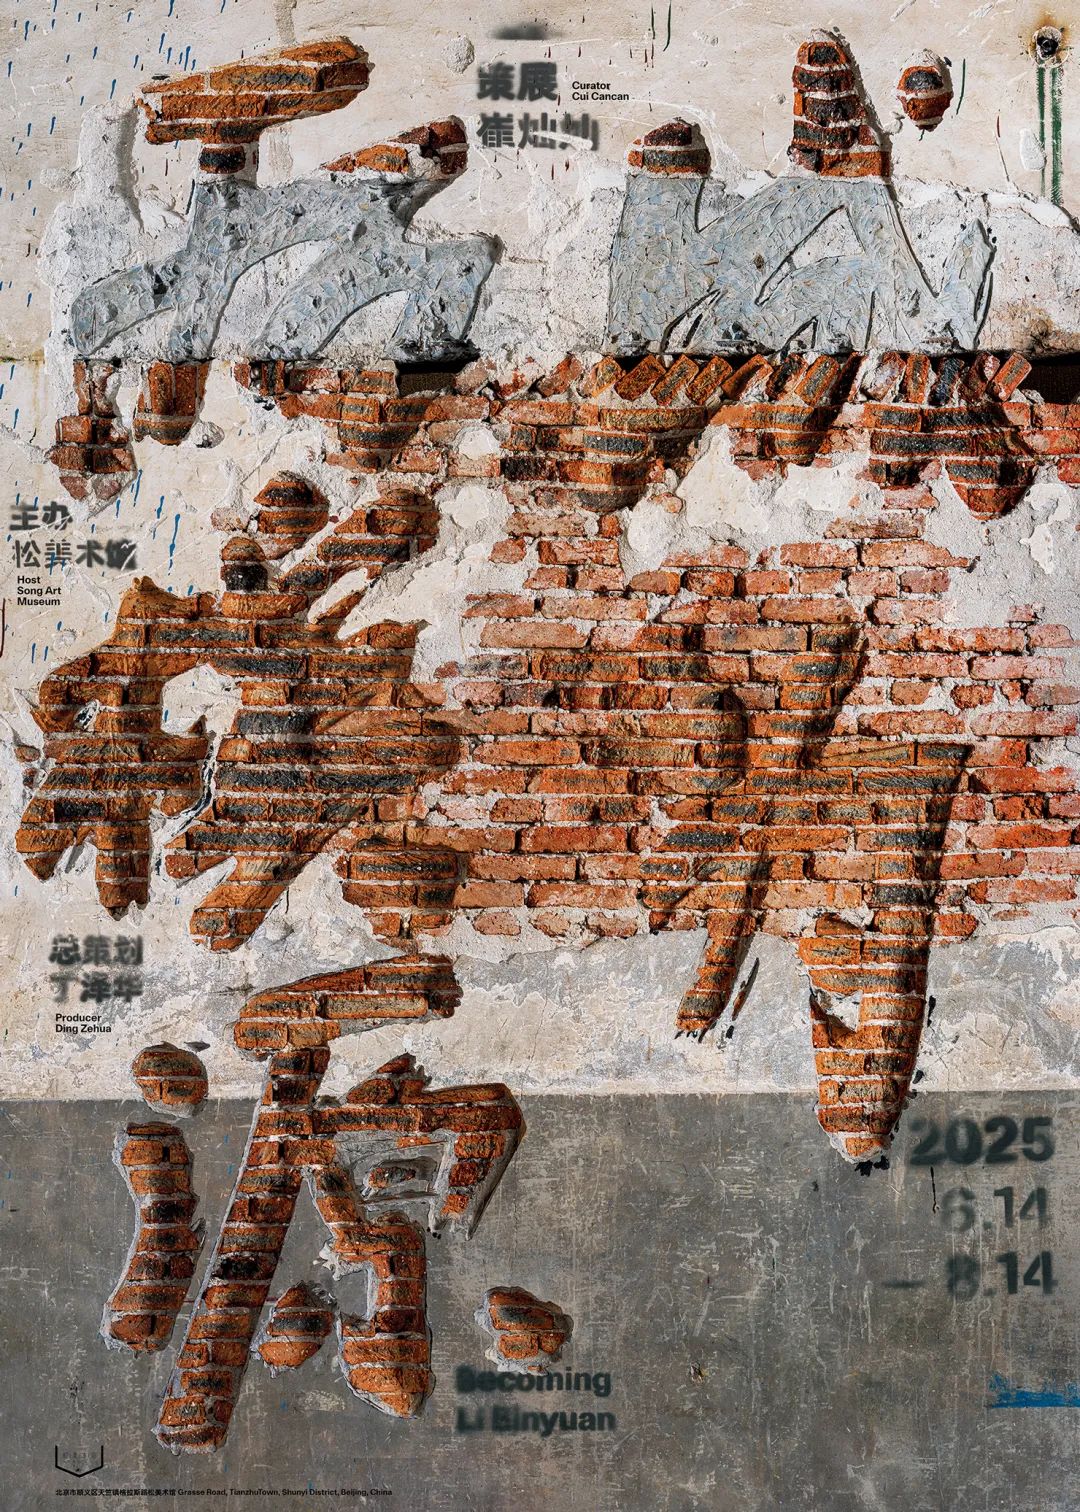 策展
崔灿灿
Curator
Cui Cancan
主办
松美术馆
Host
Song Art
Museum
总策划
丁泽华
Producer
Ding Zehua
源
2025
6.14
— 8.14
Becoming
Li Binyuan
北京市顺义区天竺镇格拉斯路松美术馆 Grasse Road, TianzhuTown, Shunyi District, Beijing, China